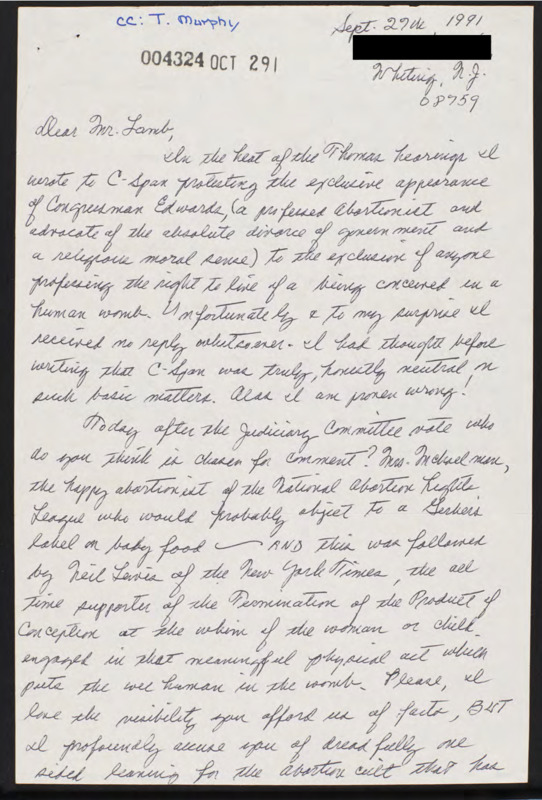 cc: T. Murphy
Sept. 27th, 1991
004324 OCT 291
Whiting, N.J.
08759
Dear Mr. Lamb,
In the heat of the Thomas hearings I
wrote to C-Span protesting the exclusive appearance
of Congressman Edwards, (a professed Abortionist and
advocate of the absolute divorce of government and
a religious moral sense) to the exclusion of anyone
professing the right to live of a being conceived in a
human womb. Unfortunately & to my surprise I
received no reply whatsoever. I had thought before
writing that C-Span was truly, honestly neutral on
such basic matters. Alas I am proven wrong!
Today after the Judiciary Committee vote who
do you think is chosen for comment? Mrs. Michaelman,
the happy abortionist of the National Abortion Rights
League who would probably object to a Gerber's
label on baby food — AND this was followed
by Neil Lewis of the New York Times, the all
time supporter of the Termination of the Product of
Conception at the whim of the woman or child
engaged in that meaningful physical act which
puts the wee human in the womb. Please, I
love the visibility you afford us of facts, BUT
I profoundly accuse you of dreadfully one
sided leaning for the abortion cult that has